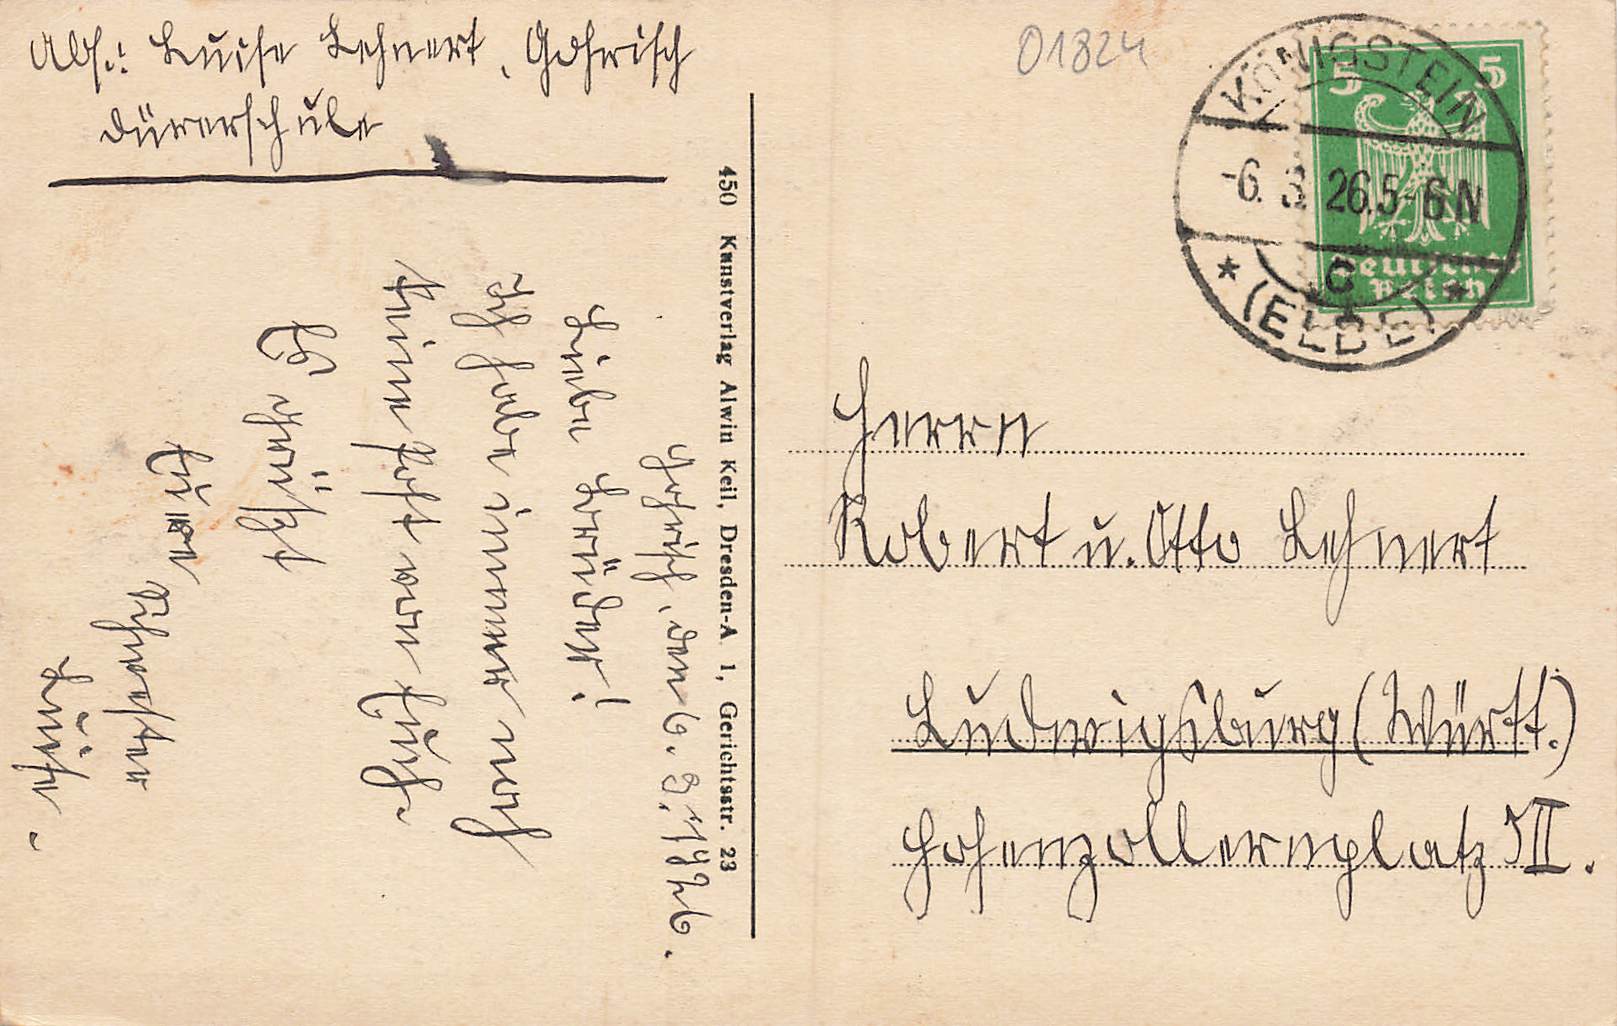 Abs.: Luise Lehnert, Gohrisch
Dürerschule
01824
KÖNIGSTEIN
-6. 3. 26. 5-6 N
* C *
(ELBE)
5 5
Deutsches
Reich
450 Kunstverlag Alwin Keil, Dresden-A 1, Gerichtsstr. 23
Gohrisch, den 6. 3. 1926.
Liebe Brüder!
Ich habe immer noch
keine Post von Euch.
Es grüßt
Eure
Schwester
Luise.
Herrn
Robert u. Otto Lehnert
Ludwigsburg (Württ.)
Hohenzollernplatz III.